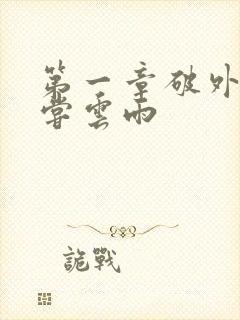 第一章破外
嘗雲雨
詭戰